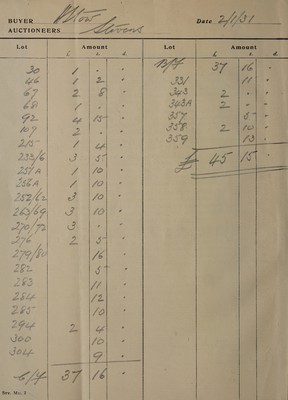 BUYER V Stow Date 2/1/31
AUCTIONEERS Stevens
Lot Amount Lot Amount
£ s. d. £ s. d.
30 1 . .
46 1 2 .
67 2 8 .
68 1 . .
92 4 15 .
107 2 . .
215 1 4 .
233/6 3 5 .
251A 1 10 .
256A 1 10 .
252/62 3 10 .
263/69 3 10 .
270/72 3 .
276 2 5 .
279/80 16 .
282 5 .
283 11 .
284 12 .
285 10 .
294 2 4 .
300 10 .
304 9 .
C/f 37 16 .
B/f 37 16 .
331 11 .
343 2 . .
343A 2 . .
357 5 .
358 2 10 .
359 13 .
£ 45 15 .